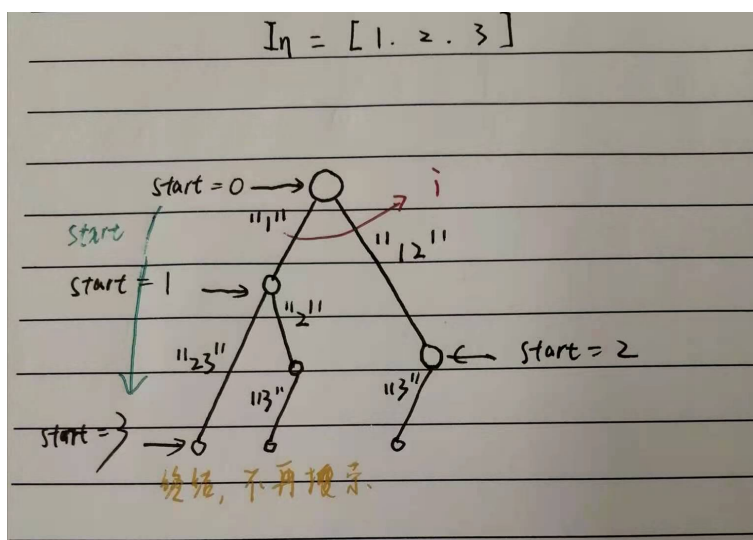 In = [1. 2. 3]
start = 0
i
start
"1"
"12"
start = 1
"2"
"23"
start = 2
"3"
"3"
start = 3
终结, 不再提示.